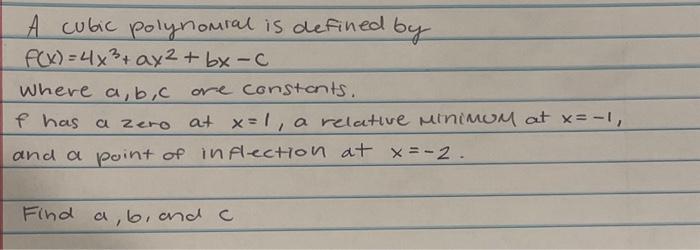 A cubic polynomial is defined by
f(x)=4x³+ax²+bx-c
where a,b,c are constants.
f has a zero at x=1, a relative minimum at x=-1,
and a point of inflection at x=-2.
Find a,b, and c